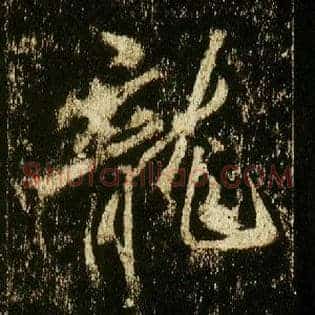 龍
Shufaziliao.COM